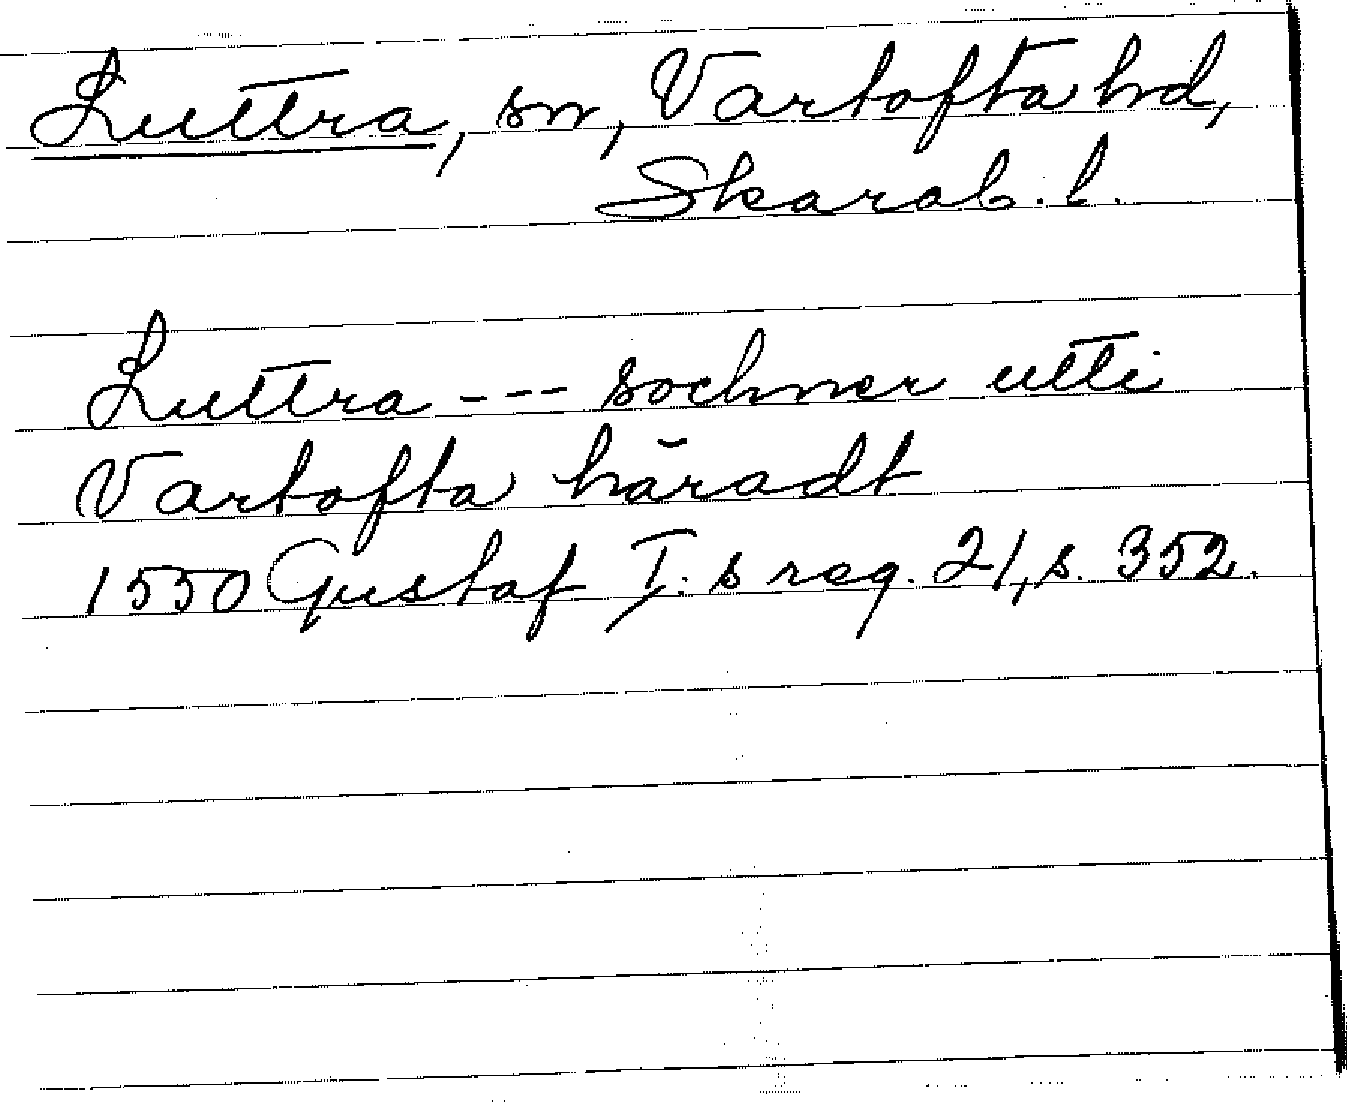 Luttra, sn, Vartofta hd,
Skarab. l.
Luttra --- sochner utti
Vartofta häradt
1550 Gustaf I:s reg. 21, s. 352.